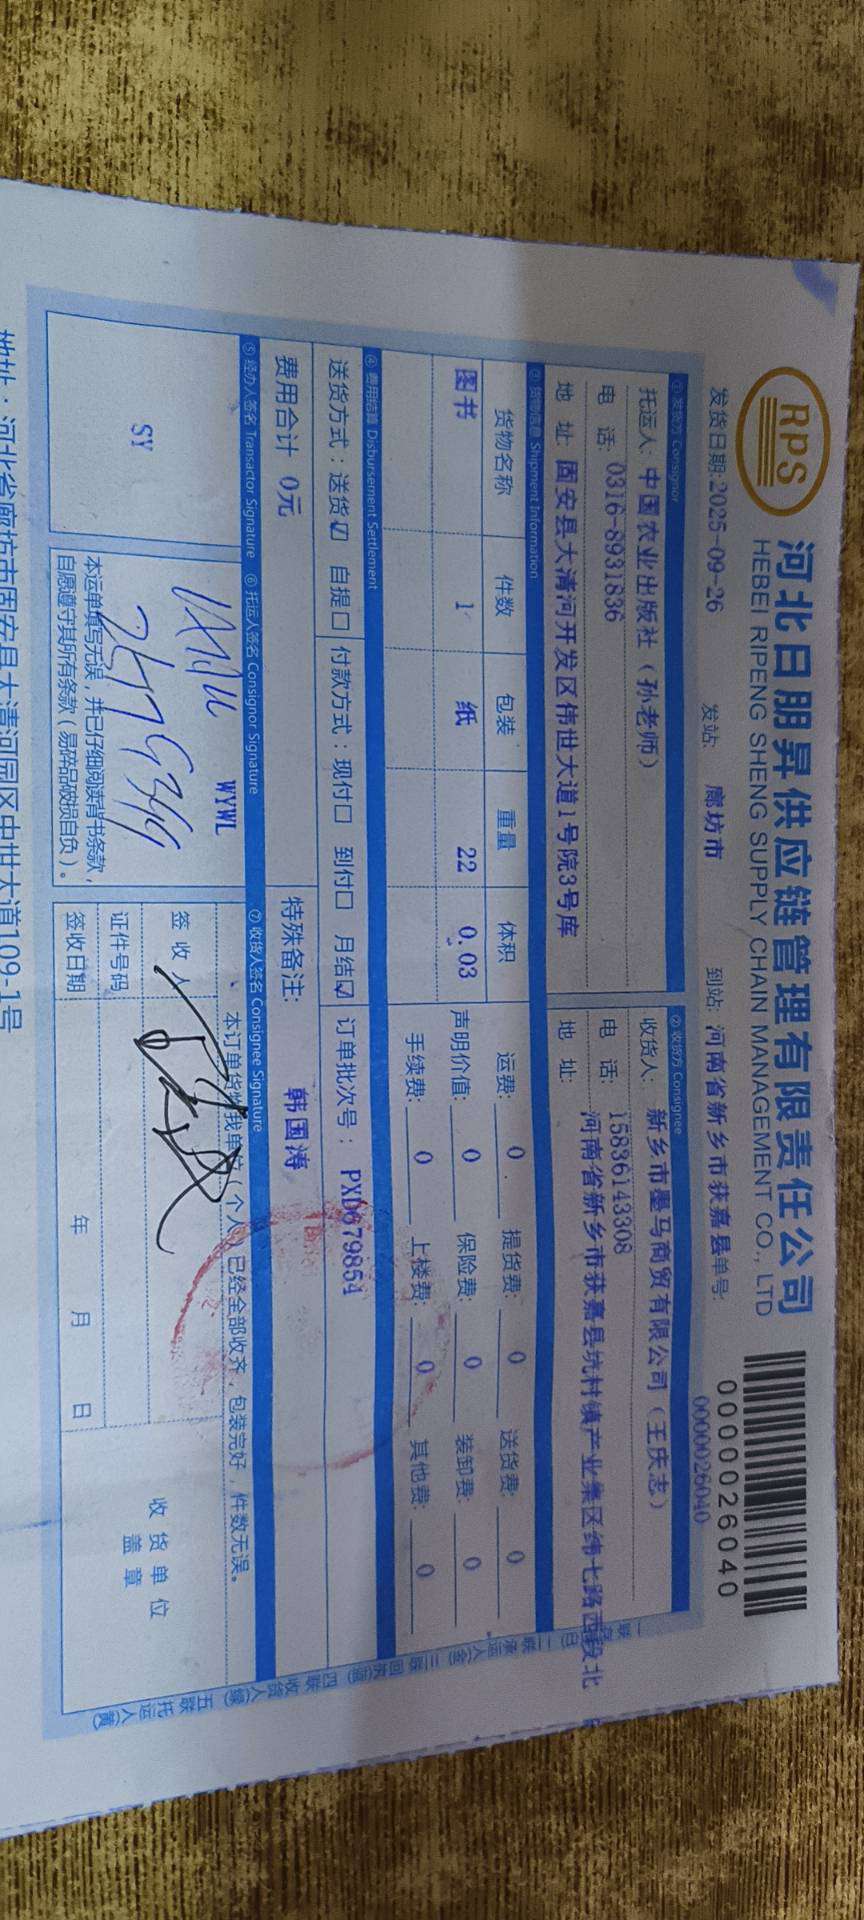 RPS
河北日朋昇供应链管理有限责任公司
HEBEI RIPENG SHENG SUPPLY CHAIN MANAGEMENT CO., LTD
0000026040
发货日期:2025-09-26 发站: 廊坊市 到站: 河南省新乡市获嘉县 单号: 0000026040
① 发货方 Consignor ② 收货方 Consignee
托运人: 中国农业出版社(孙老师) 收货人: 新乡市墨马商贸有限公司(王庆志)
电 话: 0316-8931836 电 话: 15836143308
地 址: 固安县大清河开发区伟世大道1号院3号库 地 址: 河南省新乡市获嘉县亢村镇产业集区纬七路西段北
③ 货物信息 Shipment Information
货物名称 件数 包装 重量 体积 运费: 0 提货费: 0 送货费: 0
图书 1 纸 22 0.03 声明价值: 0 保险费: 0 装卸费: 0
手续费: 0 上楼费: 0 其他费: 0
④ 费用结算 Disbursement Settlement
送货方式:送货☑ 自提口 付款方式:现付口 到付口 月结☑ 订单批次号: PXD679854
费用合计 0元 特殊备注: 韩国涛
⑤ 经办人签名 Transactor Signature ⑥ 托运人签名 Consignor Signature ⑦ 收货人签名 Consignee Signature
SY
WYWL
本运单填写无误,并已仔细阅读背书条款,
自愿遵守其所有条款(易碎品破损自负)。
本订单货物我单位(个人)已经全部收齐,包装完好,件数无误。
签 收 人
证件号码
签收日期 年 月 日
收货单位
盖 章
地址:河北省廊坊市固安县大清河园区中世大道109-1号